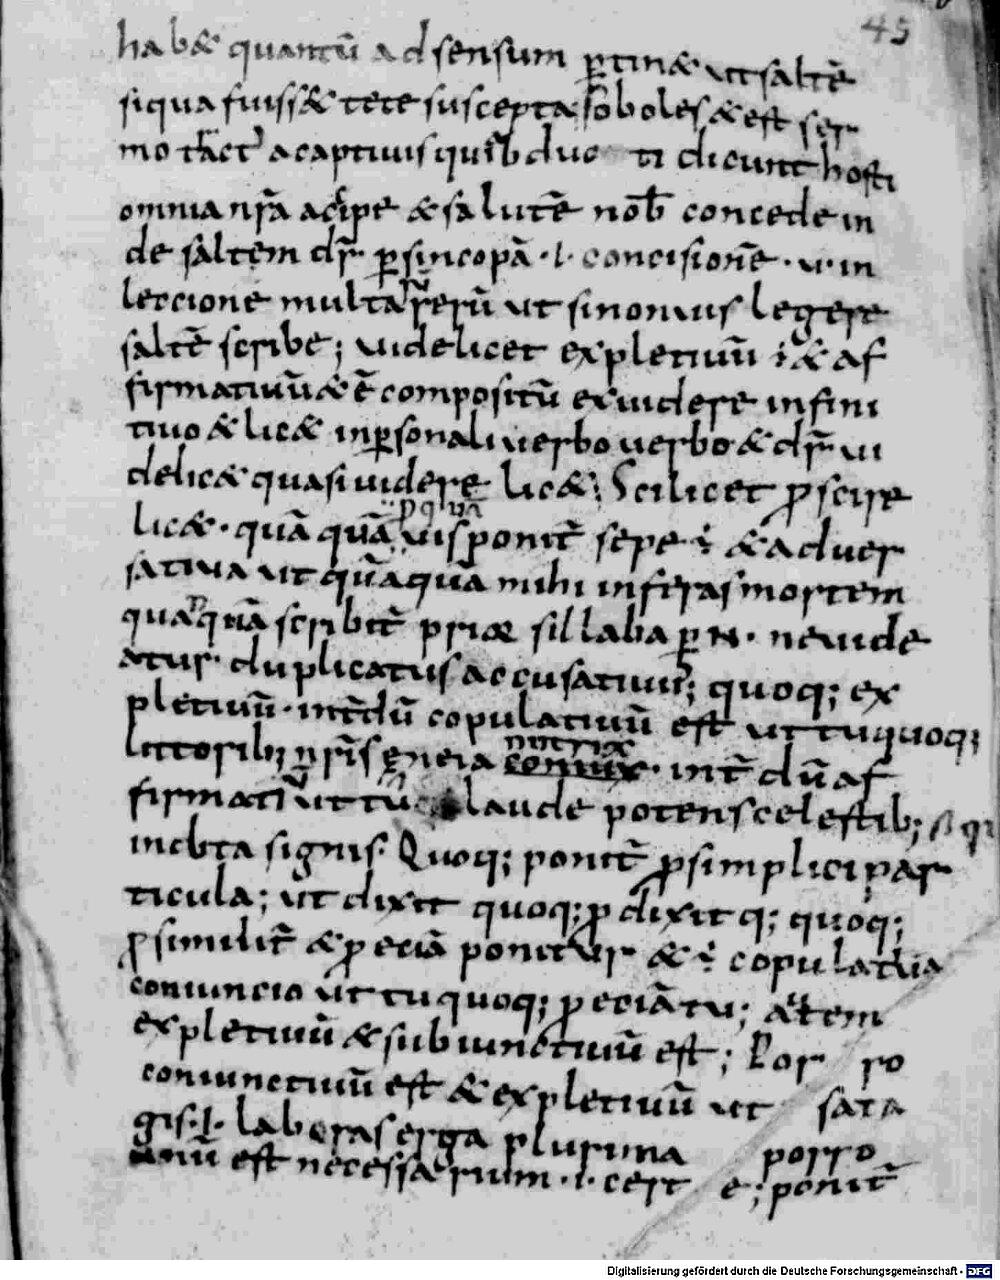 45
habæ quantū ad sensum ꝑtinæ ut saltē
siqua fuissæ te te suscepta soboles & est ser
mo tract' a captiuis quib duo ti dicunt hosti
omnia nr̄a accipe & salutē nob̄ concede in
de saltem dr̄ ꝑ sincopā · ł · concisionē · u · in
leccione multarū rerū ut sinonius legere
saltē scribe; uidelicet expletiuū · i · & af
firmatiuū & ē compositū ex uidere infini
tiuo & licæ inꝑsonali uerbo uerbo & dr̄ ui
delicæ quasi uidere licæ; Scilicet ꝓ scire
licæ · quā quā uis ponit̄ sepe · i · & aduer
satiua ut quāquā mihi inferas mortem
quaquā scribit̄ priore sillaba ꝑ N · ne uide
atur duplicatus accusatiuus; quoq; ex
pletiuū · int̄dū copulatiuū est ut tu quoq;
littorib; nr̄is eneia nutrix · int̄dū af
firmati ut tu laude potens celestib;
inclita signis · Quoq; ponit̄ ꝓ simplici par
ticula; ut dixit quoq; ꝓ dixit q; quoq;
ꝓ similit̄ & ꝓ eciā ponitur & · i · copulatiua
coniuncio ut tu quoq; ꝓ eciā tu; autem
expletiuū & subiunctiuū est; Por ro
coniunctiuū est & expletiuū ut sata
gis · ł · laboras erga plurima porro
unū est necessarium · i · cert e; ponit̄
Digitalisierung gefördert durch die Deutsche Forschungsgemeinschaft - DFG